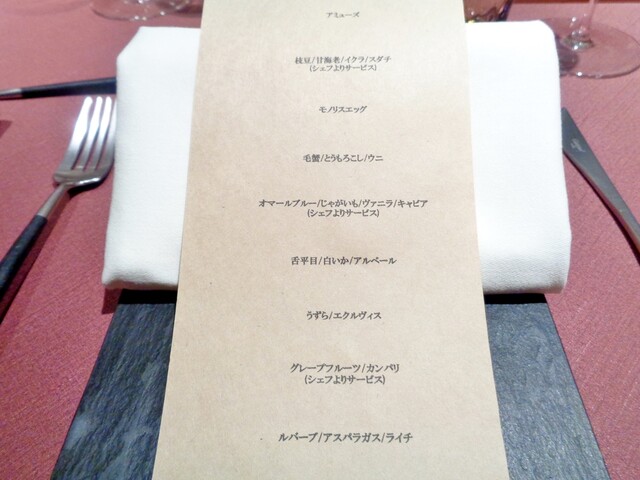 アミューズ
枝豆/甘海老/イクラ/スダチ
(シェフよりサービス)
モノリスエッグ
毛蟹/とうもろこし/ウニ
オマールブルー/じゃがいも/ヴァニラ/キャビア
(シェフよりサービス)
舌平目/白いか/アルベール
うずら/エクルヴィス
グレープフルーツ/カンパリ
(シェフよりサービス)
ルバーブ/アスパラガス/ライチ